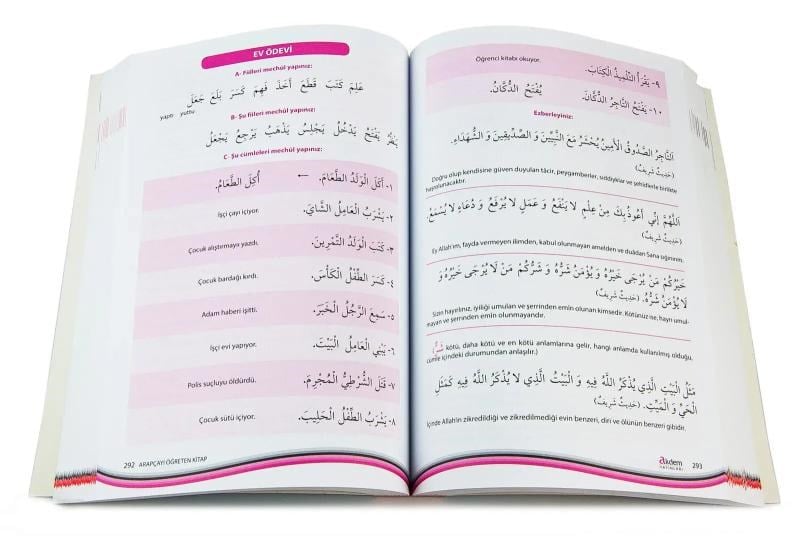 EV ÖDEVİ
A- Fiilleri mechûl yapınız:
عَلِمَ كَتَبَ قَطَعَ أَخَذَ فَهِمَ كَسَرَ بَلَعَ جَعَلَ
yaptı yuttu
B- Şu fiileri mechûl yapınız:
يَنْقُرُ يَفْتَحُ يَدْخُلُ يَجْلِسُ يَذْهَبُ يَرْجِعُ يَجْعَلُ
C- Şu cümleleri mechûl yapınız:
١- أَكَلَ الْوَلَدُ الطَّعَامَ. ← أُكِلَ الطَّعَامُ.
٢- يَشْرَبُ الْعَامِلُ الشَّايَ. İşçi çayı içiyor.
٣- كَتَبَ الْوَلَدُ التَّمْرِينَ. Çocuk alıştırmayı yazdı.
٤- كَسَرَ الطِّفْلُ الْكَأْسَ. Çocuk bardağı kırdı.
٥- سَمِعَ الرَّجُلُ الْخَبَرَ. Adam haberi işitti.
٦- يَبْنِي الْعَامِلُ الْبَيْتَ. İşçi evi yapıyor.
٧- قَتَلَ الشُّرْطِيُّ الْمُجْرِمَ. Polis suçluyu öldürdü.
٨- يَشْرَبُ الطِّفْلُ الْحَلِيبَ. Çocuk sütü içiyor.
292 ARAPÇAYI ÖĞRETEN KİTAP
٩- يَقْرَأُ التِّلْمِيذُ الْكِتَابَ. Öğrenci kitabı okuyor.
١٠- يَفْتَحُ التَّاجِرُ الدُّكَّانَ. يُفْتَحُ الدُّكَّانُ.
Ezberleyiniz:
اَلتَّاجِرُ الصَّدُوقُ الْأَمِينُ يُحْشَرُ مَعَ النَّبِيِّينَ وَ الصِّدِّيقِينَ وَ الشُّهَدَاءِ.
(حَدِيثٌ شَرِيفٌ)
Doğru olup kendisine güven duyulan tâcir, peygamberler, sıddîyklar ve şehidlerle birlikte
haşrolunacaktır.
اَللَّهُمَّ إِنِّي أَعُوذُ بِكَ مِنْ عِلْمٍ لَا يَنْفَعُ وَ عَمَلٍ لَا يُرْفَعُ وَ دُعَاءٍ لَا يُسْمَعُ.
(حَدِيثٌ شَرِيفٌ)
Ey Allah'ım, fayda vermeyen ilimden, kabul olunmayan amelden ve duâdan Sana sığınırım.
خَيْرُكُمْ مَنْ يُرْجَى خَيْرُهُ وَ يُؤْمَنُ شَرُّهُ وَ شَرُّكُمْ مَنْ لَا يُرْجَى خَيْرُهُ وَ
لَا يُؤْمَنُ شَرُّهُ. (حَدِيثٌ شَرِيفٌ)
Sizin hayırlınız, iyiliği umulan ve şerrinden emin olunan kimsedir. Kötünüz ise, hayrı umul-
mayan ve şerrinden emin olunmayandır.
(شَرٌّ kötü, daha kötü ve en kötü anlamlarına gelir, hangi anlamda kullanılmış olduğu,
cümle içindeki durumundan anlaşılır.)
مَثَلُ الْبَيْتِ الَّذِي يُذْكَرُ اللَّهُ فِيهِ وَ الْبَيْتُ الَّذِي لَا يُذْكَرُ اللَّهُ فِيهِ كَمَثَلِ
الْحَيِّ وَ الْمَيِّتِ. (حَدِيثٌ شَرِيفٌ)
İçinde Allah'ın zikredildiği ve zikredilmediği evin benzeri, diri ve ölünün benzeri gibidir.
akdem
YAYINLARI
293